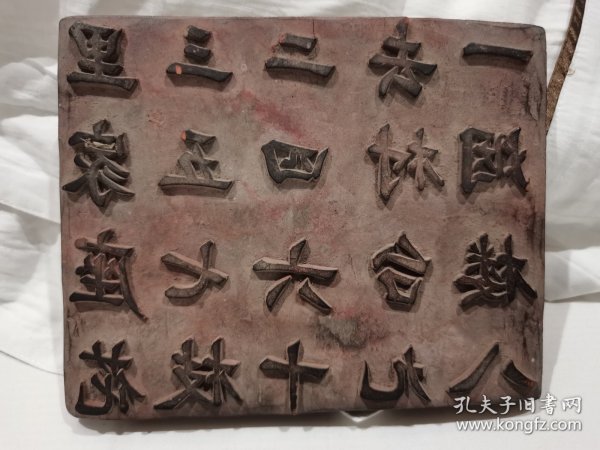 一去二三里
烟村四五家
樓台六七座
八九十枝花
孔夫子旧书网
www.kongfz.com